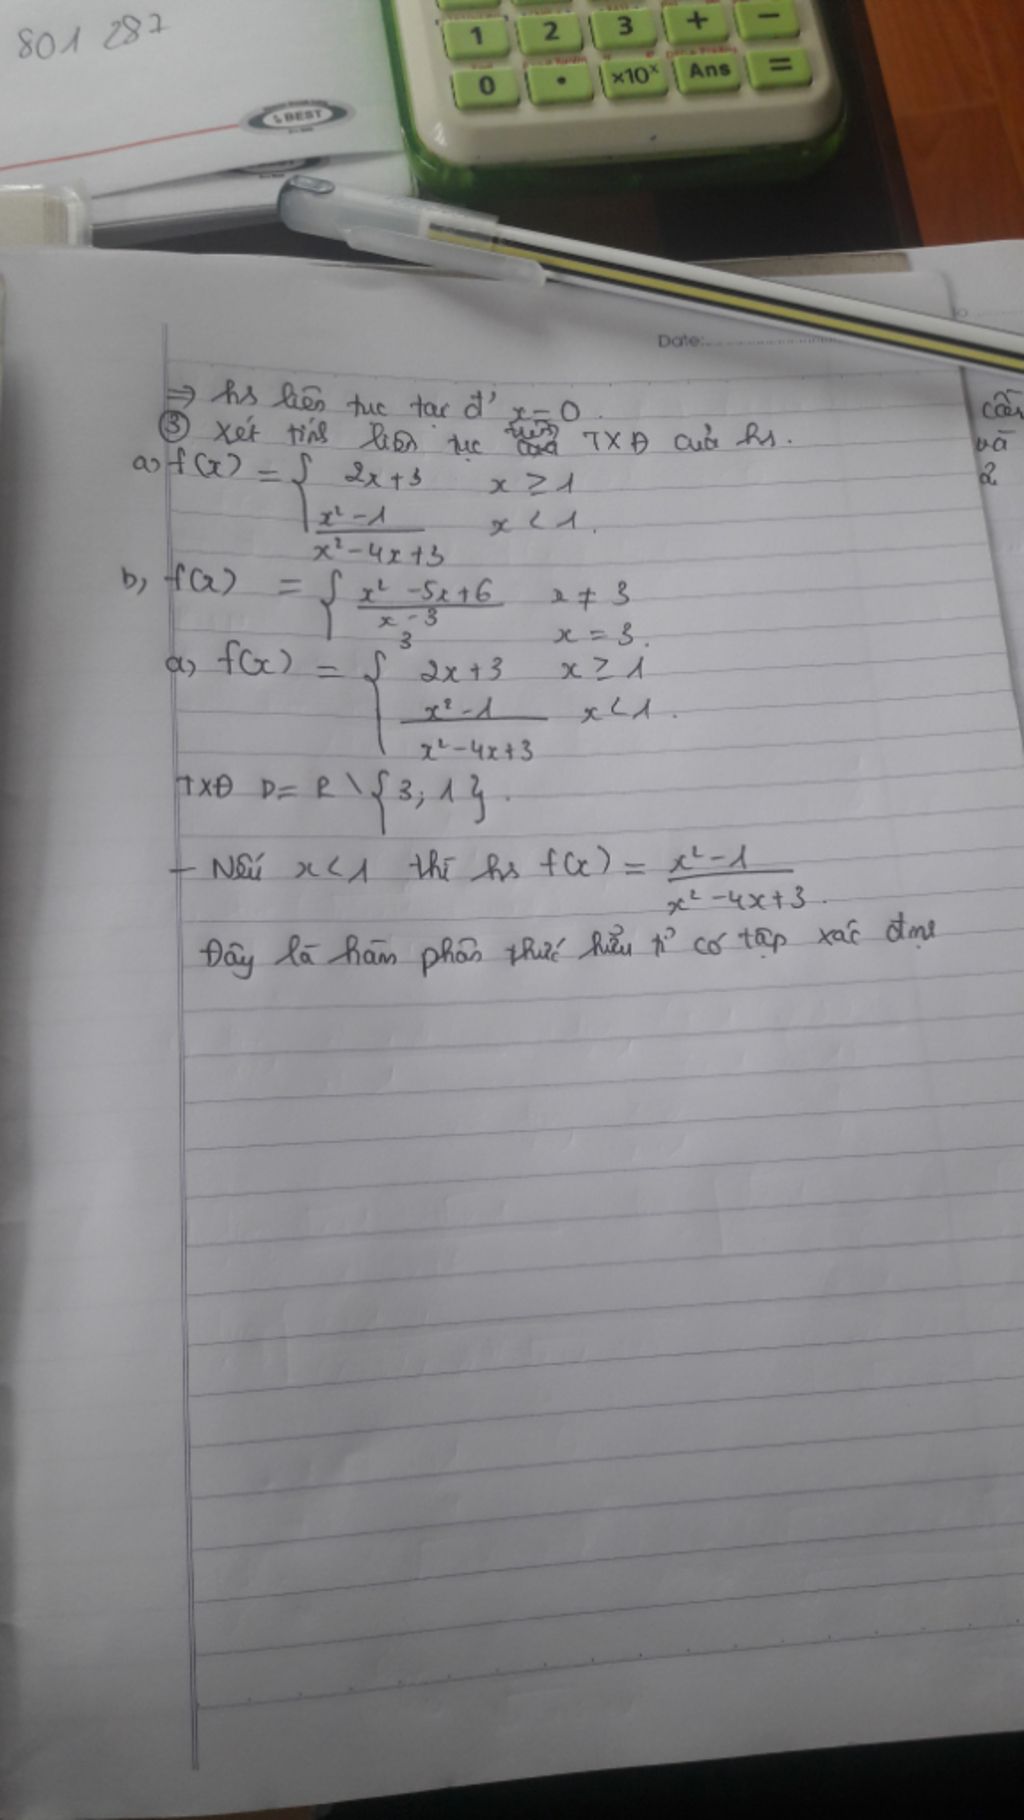 801 287
BEST
1 2 3 + −
0 • ×10ˣ Ans =
Date:
⇒ hs liên tục tại đ' x=0.
③ Xét tính liên tục trên TXĐ của hs.
a, f(x) = { 2x+3 x ≥ 1
x²-1 / x²-4x+3 x < 1.
b, f(x) = { x²-5x+6 / x-3 x ≠ 3
3 x = 3.
a, f(x) = { 2x+3 x ≥ 1
x²-1 / x²-4x+3 x < 1.
TXĐ D= R \ {3; 1}.
- Nếu x<1 thì hs f(x) = x²-1 / x²-4x+3.
Đây là hàm phân thức hữu tỉ có tập xác định
và
2